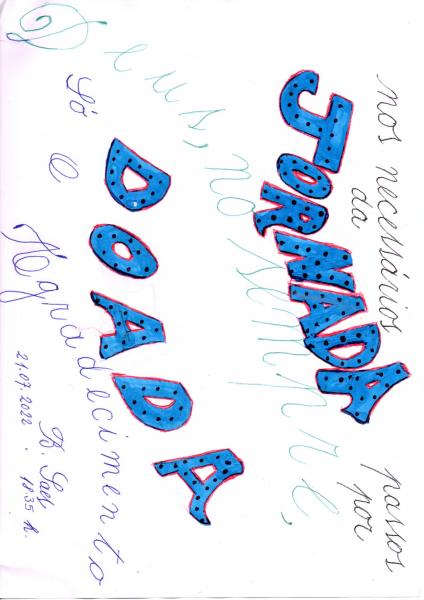 nos necessários passos
da por
JORNADA
Deus, no sempre,
DOADA
Só o Agradecimento
21.07.2022 . 18:35 h.